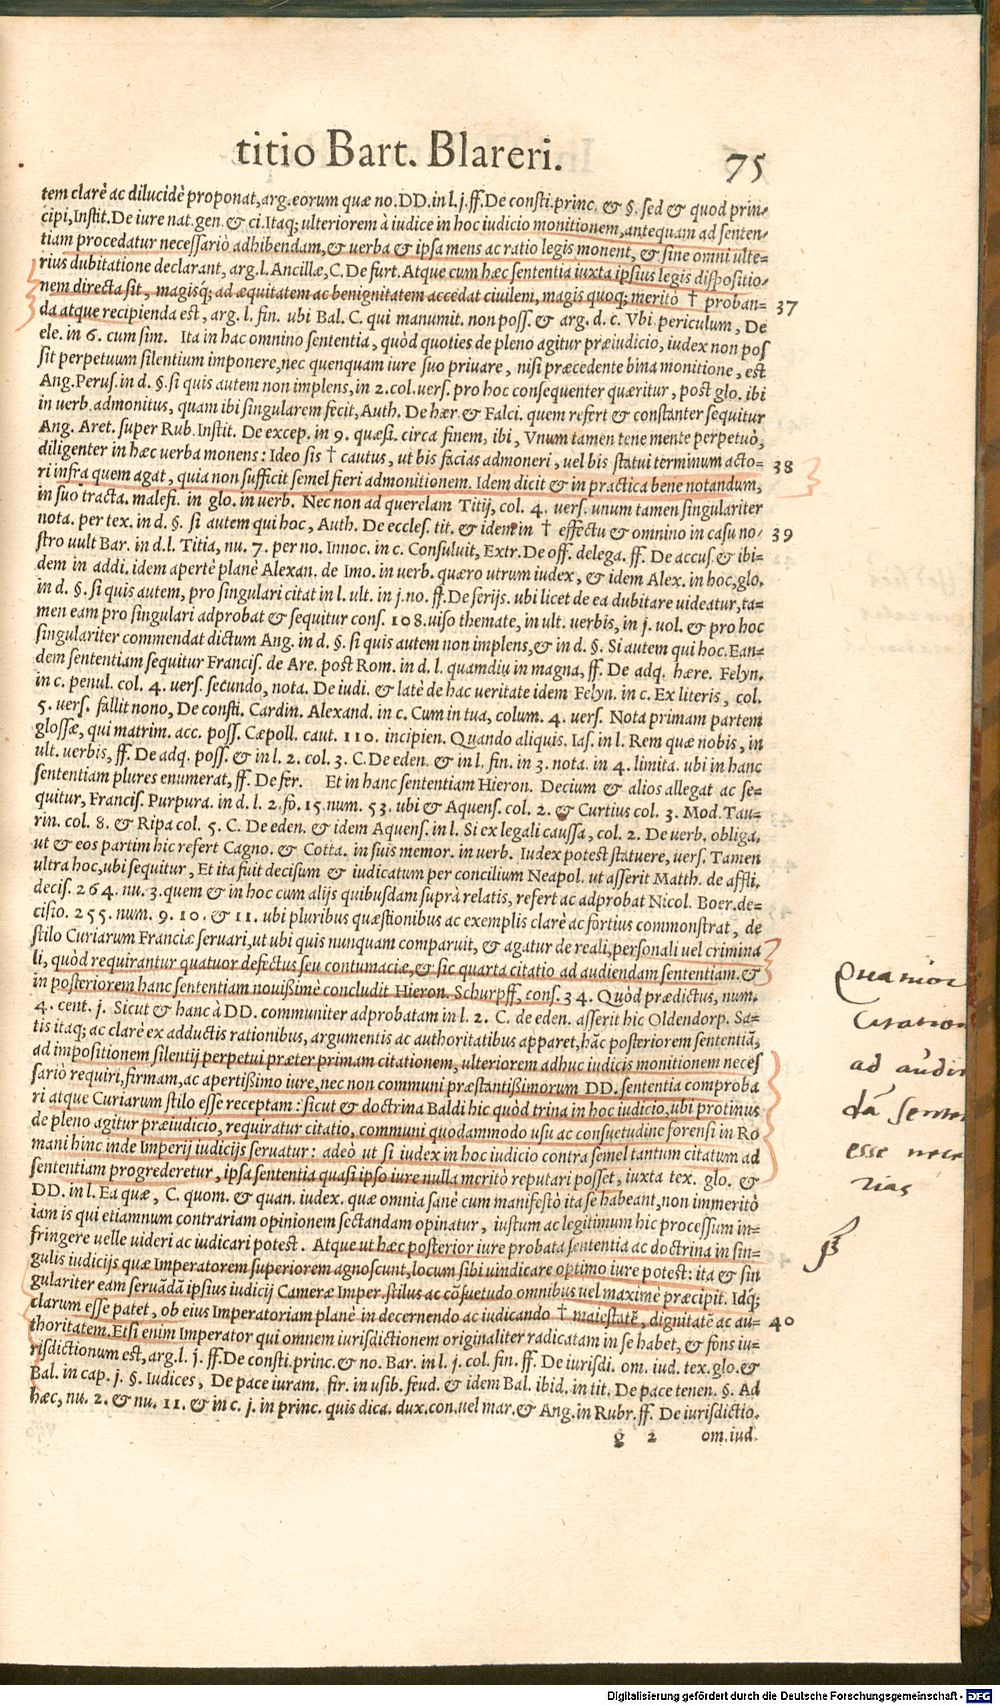 titio Bart. Blareri. 75
tem clarè ac dilucidè proponat, arg. eorum quæ no. DD. in l. j. ff. De consti. princ. & §. sed & quod prin-
cipi, Instit. De iure nat. gen. & ci. Itaq; ulteriorem à iudice in hoc iudicio monitionem, antequam ad senten-
tiam procedatur necessariò adhibendam, & uerba & ipsa mens ac ratio legis monent, & sine omni ulte-
rius dubitatione declarant, arg. l. Ancillæ, C. De furt. Atque cum hæc sententia iuxta ipsius legis dispositio-
nem directa sit, magisq; ad æquitatem ac benignitatem accedat ciuilem, magis quoq; meritò † proban- 37
da atque recipienda est, arg. l. fin. ubi Bal. C. qui manumit. non poss. & arg. d. c. Vbi periculum, De
ele. in 6. cum sim. Ita in hac omnino sententia, quòd quoties de pleno agitur præiudicio, iudex non pos
sit perpetuum silentium imponere, nec quenquam iure suo priuare, nisi præcedente bina monitione, est
Ang. Perus. in d. §. si quis autem non implens, in 2. col. uers. pro hoc consequenter quæritur, post glo. ibi
in uerb. admonitus, quam ibi singularem fecit, Auth. De hær. & Falci. quem refert & constanter sequitur
Ang. Aret. super Rub. Instit. De excep. in 9. quæst. circa finem, ibi, Vnum tamen tene mente perpetuò,
diligenter in hæc uerba monens: Ideo sis † cautus, ut bis facias admoneri, uel bis statui terminum acto- 38
ri infra quem agat, quia non sufficit semel fieri admonitionem. Idem dicit & in practica bene notandum,
in suo tracta. malefi. in glo. in uerb. Nec non ad querelam Titij, col. 4. uers. unum tamen singulariter
nota. per tex. in d. §. si autem qui hoc, Auth. De eccles. tit. & idem in † effectu & omnino in casu no- 39
stro uult Bar. in d. l. Titia, nu. 7. per no. Innoc. in c. Consuluit, Extr. De off. delega. ff. De accus. & ibi-
dem in addi. idem apertè planè Alexan. de Imo. in uerb. quæro utrum iudex, & idem Alex. in hoc, glo.
in d. §. si quis autem, pro singulari citat in l. ult. in j. no. ff. De ferijs. ubi licet de ea dubitare uideatur, ta-
men eam pro singulari adprobat & sequitur cons. 108. uiso themate, in ult. uerbis, in j. uol. & pro hoc
singulariter commendat dictum Ang. in d. §. si quis autem non implens, & in d. §. Si autem qui hoc. Ean-
dem sententiam sequitur Francis. de Are. post Rom. in d. l. quamdiu in magna, ff. De adq. hære. Felyn.
in c. penul. col. 4. uers. secundo, nota. De iudi. & latè de hac ueritate idem Felyn. in c. Ex literis, col.
5. uers. fallit nono, De consti. Cardin. Alexand. in c. Cum in tua, colum. 4. uers. Nota primam partem
glossæ, qui matrim. acc. poss. Cæpoll. caut. 110. incipien. Quando aliquis. Ias. in l. Rem quæ nobis, in
ult. uerbis, ff. De adq. poss. & in l. 2. col. 3. C. De eden. & in l. fin. in 3. nota. in 4. limita. ubi in hanc
sententiam plures enumerat, ff. De fer. Et in hanc sententiam Hieron. Decium & alios allegat ac se-
quitur, Francis. Purpura. in d. l. 2. fo. 15. num. 53. ubi & Aquens. col. 2. & Curtius col. 3. Mod. Tau-
rin. col. 8. & Ripa col. 5. C. De eden. & idem Aquens. in l. Si ex legali caussa, col. 2. De uerb. obliga.
ut & eos partim hic refert Cagno. & Cotta. in suis memor. in uerb. Iudex potest statuere, uers. Tamen
ultra hoc, ubi sequitur, Et ita fuit decisum & iudicatum per concilium Neapol. ut asserit Matth. de affli.
decis. 264. nu. 3. quem & in hoc cum alijs quibusdam suprà relatis, refert ac adprobat Nicol. Boer. de-
cisio. 255. num. 9. 10. & 11. ubi pluribus quæstionibus ac exemplis clarè ac fortius commonstrat, de
stilo Curiarum Franciæ seruari, ut ubi quis nunquam comparuit, & agatur de reali, personali uel crimina
li, quòd requirantur quatuor defectus seu contumaciæ, & sic quarta citatio ad audiendam sententiam. &
in posteriorem hanc sententiam nouißimè concludit Hieron. Schurpff, cons. 34. Quòd prædictus, num.
4. cent. j. Sicut & hanc à DD. communiter adprobatam in l. 2. C. de eden. asserit hic Oldendorp. Sa-
tis itaq; ac clarè ex adductis rationibus, argumentis ac authoritatibus apparet, hãc posteriorem sententiã,
ad impositionem silentij perpetui præter primam citationem, ulteriorem adhuc iudicis monitionem neces
sariò requiri, firmam, ac apertißimo iure, nec non communi præstantißimorum DD. sententia comproba
ri atque Curiarum stilo esse receptam: sicut & doctrina Baldi hic quòd trina in hoc iudicio, ubi protinus
de pleno agitur præiudicio, requiratur citatio, communi quodammodo usu ac consuetudine forensi in Ro
mani hinc inde Imperij iudicijs seruatur: adeò ut si iudex in hoc iudicio contra semel tantum citatum ad
sententiam progrederetur, ipsa sententia quasi ipso iure nulla meritò reputari posset, iuxta tex. glo. &
DD. in l. Ea quæ, C. quom. & quan. iudex. quæ omnia sanè cum manifestò ita se habeant, non immeritò
iam is qui etiamnum contrariam opinionem sectandam opinatur, iustum ac legitimum hic processum in-
fringere uelle uideri ac iudicari potest. Atque ut hæc posterior iure probata sententia ac doctrina in sin-
gulis iudicijs quæ Imperatorem superiorem agnoscunt, locum sibi uindicare optimo iure potest: ita & sin
gulariter eam seruãdã ipsius iudicij Cameræ Imper. stilus ac cõsuetudo omnibus uel maximè præcipit. Idq;
clarum esse patet, ob eius Imperatoriam planè in decernendo ac iudicando † maiestatẽ, dignitatẽ ac au- 40
thoritatem. Etsi enim Imperator qui omnem iurisdictionem originaliter radicatam in se habet, & fons iu-
risdictionum est, arg. l. j. ff. De consti. princ. & no. Bar. in l. j. col. fin. ff. De iurisdi. om. iud. tex. glo. &
Bal. in cap. j. §. Iudices, De pace iuram. fir. in usib. feud. & idem Bal. ibid. in tit. De pace tenen. §. Ad
hæc, nu. 2. & nu. 11. & in c. j. in princ. quis dica. dux. con. uel mar. & Ang. in Rubr. ff. De iurisdictio.
g 2 om. iud.
Quanior
Citation
ad audi
dã senten
esse nece
rias
Digitalisierung gefördert durch die Deutsche Forschungsgemeinschaft - DFG